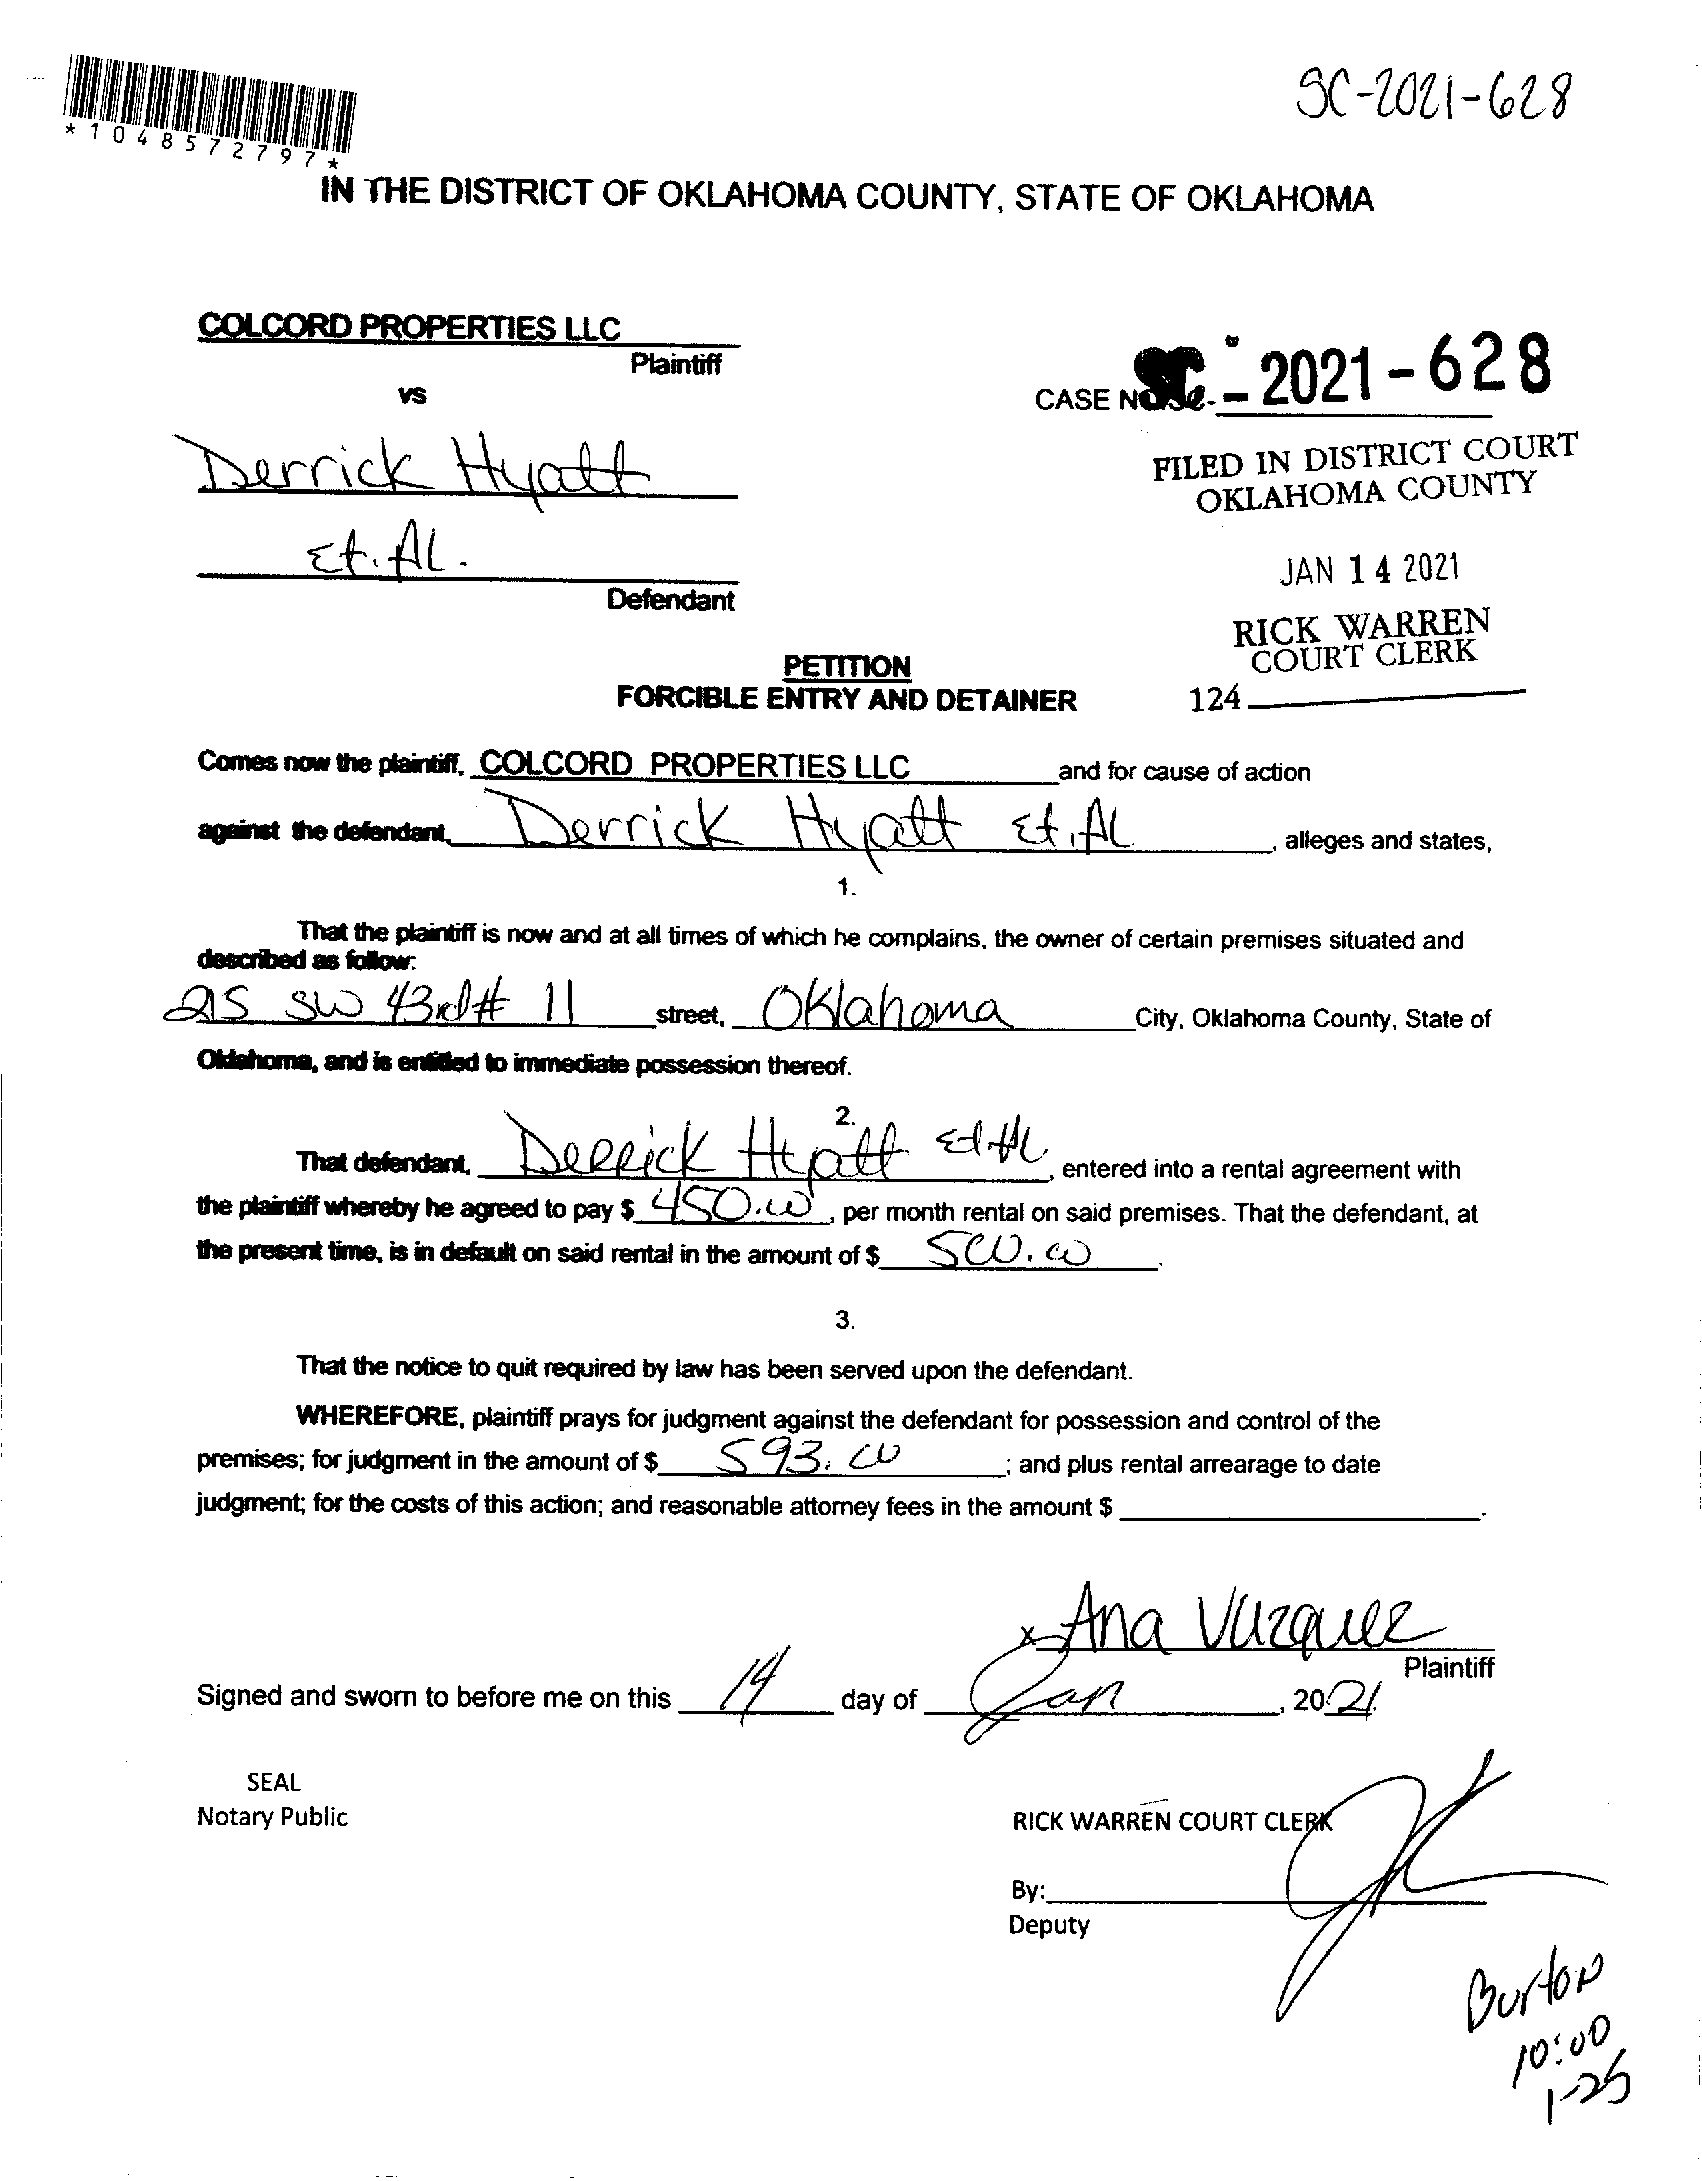 SC-2021-628
*1048572797*
IN THE DISTRICT OF OKLAHOMA COUNTY, STATE OF OKLAHOMA
COLCORD PROPERTIES LLC
Plaintiff
vs
CASE NO. SC - 2021-628
Derrick Hyatt
Et. Al.
Defendant
FILED IN DISTRICT COURT
OKLAHOMA COUNTY
JAN 14 2021
RICK WARREN
COURT CLERK
124
PETITION
FORCIBLE ENTRY AND DETAINER
Comes now the plaintiff, COLCORD PROPERTIES LLC and for cause of action
against the defendant, Derrick Hyatt Et. Al , alleges and states,
1.
That the plaintiff is now and at all times of which he complains, the owner of certain premises situated and
described as follow:
215 SW 43rd # 11 street, Oklahoma City, Oklahoma County, State of
Oklahoma, and is entitled to immediate possession thereof.
2.
That defendant, Derrick Hyatt Et Al , entered into a rental agreement with
the plaintiff whereby he agreed to pay $ 450.00 , per month rental on said premises. That the defendant, at
the present time, is in default on said rental in the amount of $ 500.00 .
3.
That the notice to quit required by law has been served upon the defendant.
WHEREFORE, plaintiff prays for judgment against the defendant for possession and control of the
premises; for judgment in the amount of $ 593.00 ; and plus rental arrearage to date
judgment; for the costs of this action; and reasonable attorney fees in the amount $ .
x Ana Vazquez
Plaintiff
Signed and sworn to before me on this 14 day of Jan , 2021.
SEAL
Notary Public
RICK WARREN COURT CLERK
By:
Deputy
Burton
10:00
1-25